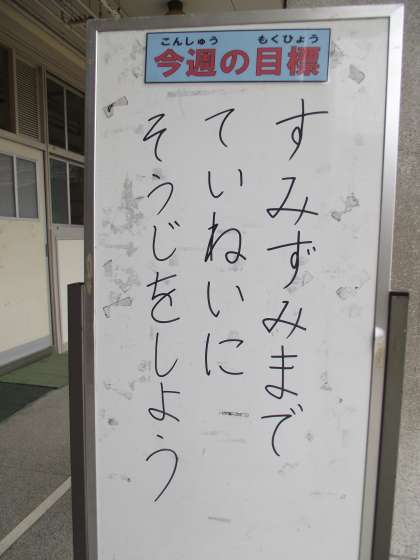 こんしゅう もくひょう
今週の目標
すみずみまで
ていねいに
そうじをしよう